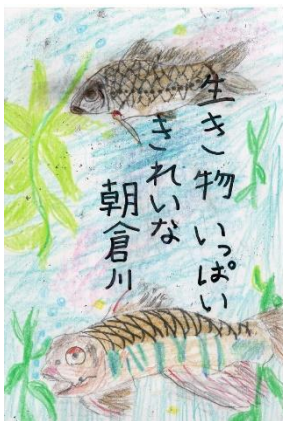 生き物いっぱい
きれいな
朝倉川